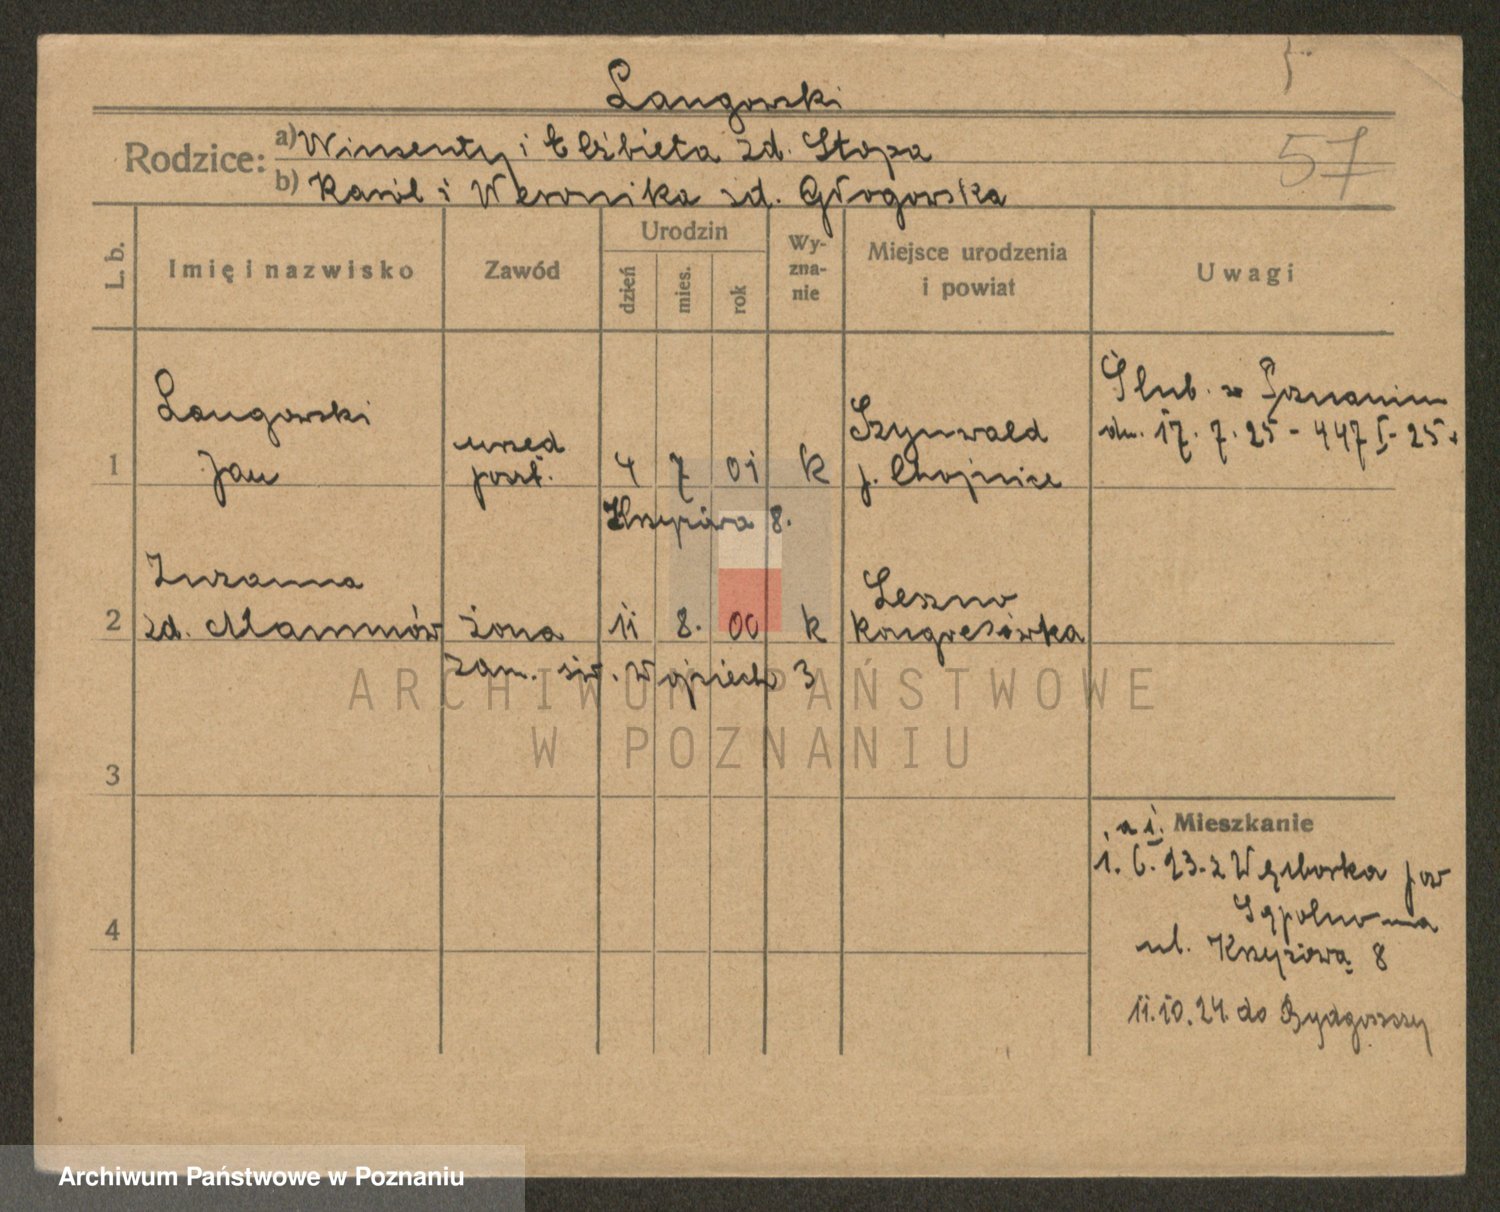 Langowski
57
Rodzice: a) Wincenty i Elżbieta zd. Stopa
b) Karol i Weronika zd. Głogowska
L. b.
Imię i nazwisko
Zawód
Urodzin
dzień
mies.
rok
Wy-
zna-
nie
Miejsce urodzenia
i powiat
Uwagi
Langowski
1 Jan
urzęd
poczt.
4 7 01 k
Szynwald
p. Chojnice
Ślub. w Poznaniu
dn. 17. 7. 25 - 447 I - 25.
Krzyżowa 8.
Zuzanna
2 zd.
żona 11 8. 00 k
Leszno
kongresówka
zam. św. Wojciech 3
3
4
Mieszkanie
1. 6. 23. z Więcborka pow
Sępolno
ul. Krzyżowa 8
11.10.24. do Bydgoszczy
ARCHIWUM PAŃSTWOWE
W POZNANIU
Archiwum Państwowe w Poznaniu